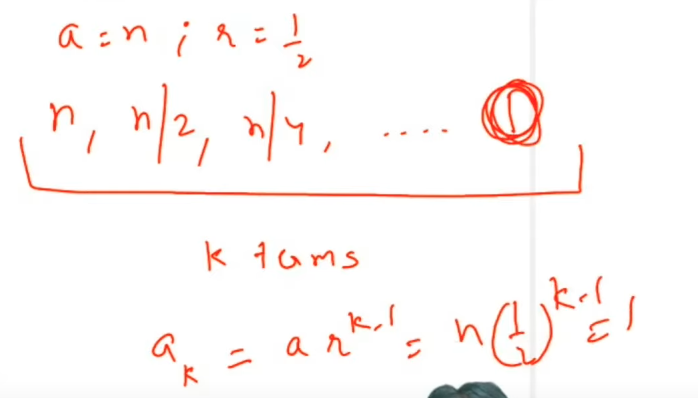 a = n ; r = 1/2
n, n/2, n/4, .... 1
k terms
a_k = a r^{k-1} = n(1/2)^{k-1} = 1